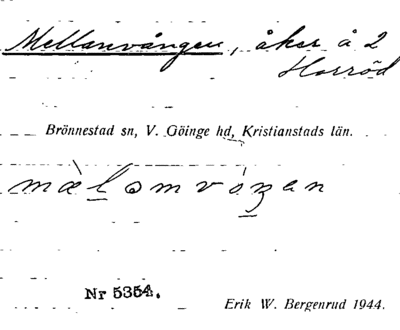 Mellanvången, åker å 2
Horröd
Brönnestad sn, V. Göinge hd, Kristianstads län.
Nr 5354.
Erik W. Bergenrud 1944.